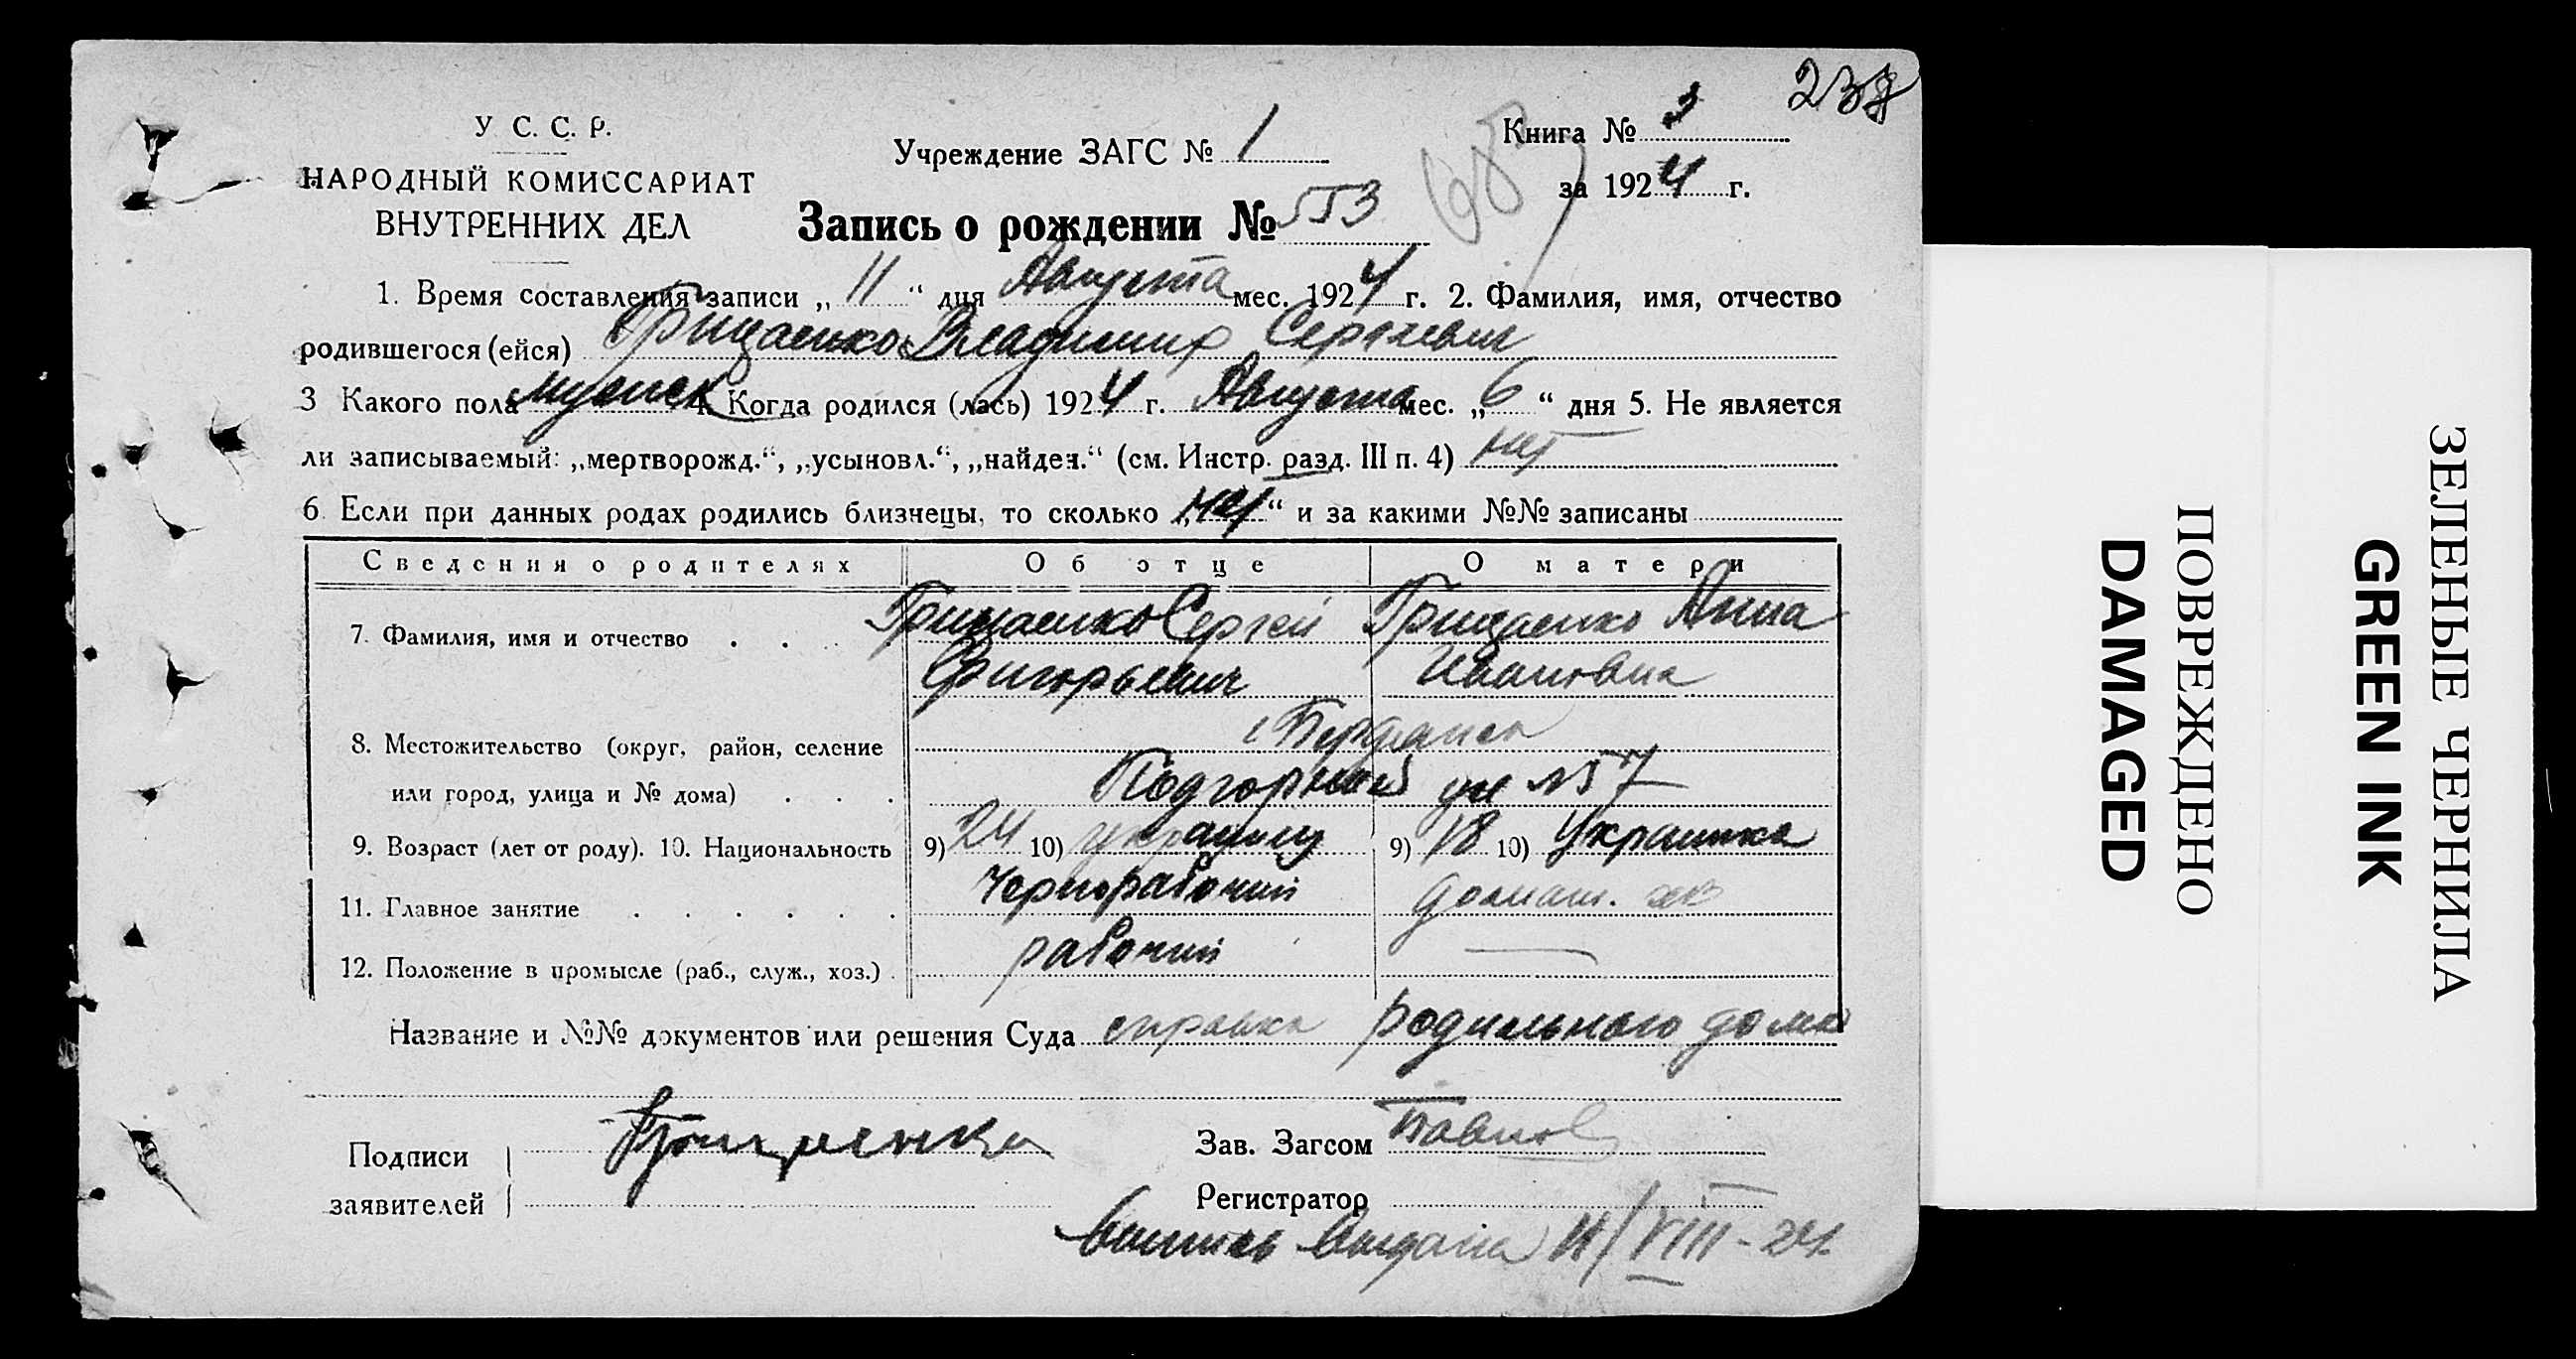 238
У С. С. Р.
НАРОДНЫЙ КОМИССАРИАТ
ВНУТРЕННИХ ДЕЛ
Учреждение ЗАГС № 1
Книга № 3
за 1924 г.
Запись о рождении № 553
1. Время составления записи „11“ дня Августа мес. 1924 г. 2. Фамилия, имя, отчество
родившегося (ейся) Грицаенко Владимир Сергеевич
3 Какого пола мужск 4. Когда родился (лась) 1924 г. Августа мес. „6“ дня 5. Не является
ли записываемый: „мертворожд.“, „усыновл.“, „найден.“ (см. Инстр. разд. III п. 4) нет
6. Если при данных родах родились близнецы, то сколько „нет“ и за какими №№ записаны
Сведения о родителях Об отце О матери
7. Фамилия, имя и отчество . . . Грицаенко Сергей Грицаенко Анна
Григорьевич Ивановна
8. Местожительство (округ, район, селение г Бердянск
или город, улица и № дома) . . . Подгорний ул №57
9. Возраст (лет от роду). 10. Национальность 9) 24 10) украинц 9) 18 10) Украинка
11. Главное занятие . . . . . . Чернорабочий домаш. хоз
12. Положение в промысле (раб., служ., хоз.) . рабочий —
Название и №№ документов или решения Суда справка родильного дома
Подписи
заявителей
Грицаенко
Зав. Загсом
Регистратор
Выпись выдана 11/VIII-24.
ПОВРЕЖДЕНО
DAMAGED
ЗЕЛЕНЫЕ ЧЕРНИЛА
GREEN INK